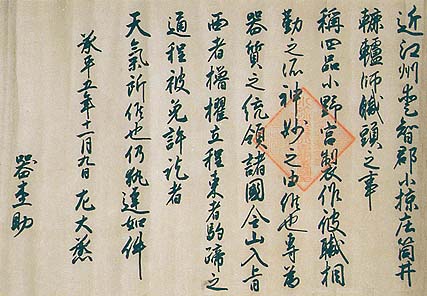 近江州愛智郡小椋庄筒井
轆轤師職頭之事
稱四品小野宮製作彼職相
勤之所神妙之由候也専為
器質之統領諸國令山入旨
西者櫓櫂立程東者駒蹄之
通程被免許訖者
天氣所候也仍執達如件
承平五年十一月九日 左大丞
器杢助